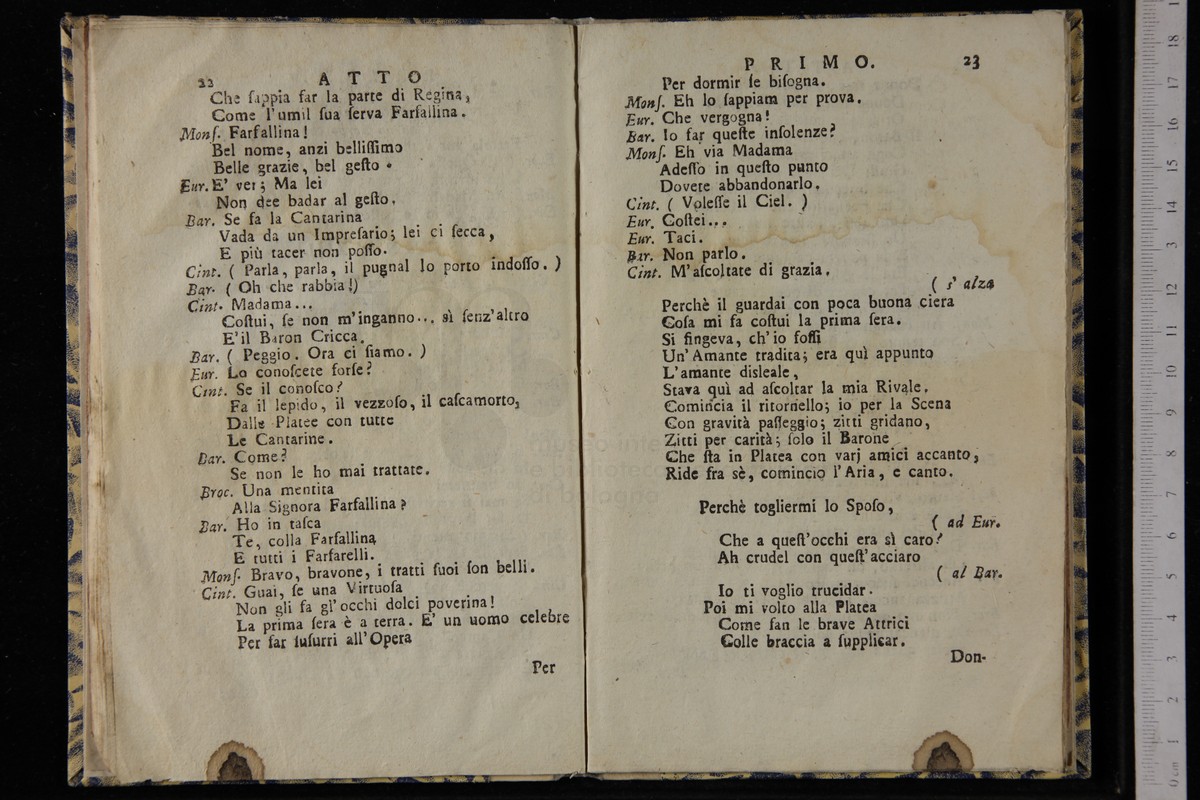 22 ATTO
Che ſappia far la parte di Regina,
Come l'umil ſua ſerva Farfallina.
Monſ. Farfallina!
Bel nome, anzi belliſſimo
Belle grazie, bel geſto.
Eur. E' ver; Ma lei
Non dee badar al geſto.
Bar. Se fa la Cantarina
Vada da un Impreſario; lei ci ſecca,
E più tacer non poſſo.
Cint. ( Parla, parla, il pugnal lo porto indoſſo. )
Bar. ( Oh che rabbia!)
Cint. Madama...
Coſtui, ſe non m'inganno... sì ſenz'altro
E' il Baron Cricca.
Bar. ( Peggio. Ora ci ſiamo. )
Eur. Lo conoſcete forſe?
Cint. Se il conoſco?
Fa il lepido, il vezzoſo, il caſcamorto,
Dalle Platee con tutte
Le Cantarine.
Bar. Come?
Se non le ho mai trattate.
Broc. Una mentita
Alla Signora Farfallina?
Bar. Ho in taſca
Te, colla Farfallina
E tutti i Farfarelli.
Monſ. Bravo, bravone, i tratti ſuoi ſon belli.
Cint. Guai, ſe una Virtuoſa
Non gli fa gl'occhi dolci poverina!
La prima ſera è a terra. E' un uomo celebre
Per far ſuſurri all'Opera
Per
PRIMO. 23
Per dormir ſe biſogna.
Monſ. Eh lo ſappiam per prova.
Eur. Che vergogna!
Bar. Io far queſte inſolenze?
Monſ. Eh via Madama
Adeſſo in queſto punto
Dovete abbandonarlo.
Cint. ( Voleſſe il Ciel. )
Eur. Coſtei...
Eur. Taci.
Bar. Non parlo.
Cint. M'aſcoltate di grazia.
( s' alza
Perchè il guardai con poca buona ciera
Coſa mi fa coſtui la prima ſera.
Si fingeva, ch'io foſſi
Un' Amante tradita; era quì appunto
L'amante disleale,
Stava quì ad aſcoltar la mia Rivale.
Comincia il ritornello; io per la Scena
Con gravità paſſeggio; zitti gridano,
Zitti per carità; ſolo il Barone
Che ſta in Platea con varj amici accanto,
Ride fra sè, comincio l'Aria, e canto.
Perchè togliermi lo Spoſo,
( ad Eur.
Che a queſt'occhi era sì caro?
Ah crudel con queſt'acciaro
( al Bar.
Io ti voglio trucidar.
Poi mi volto alla Platea
Come fan le brave Attrici
Colle braccia a ſupplicar.
Don-